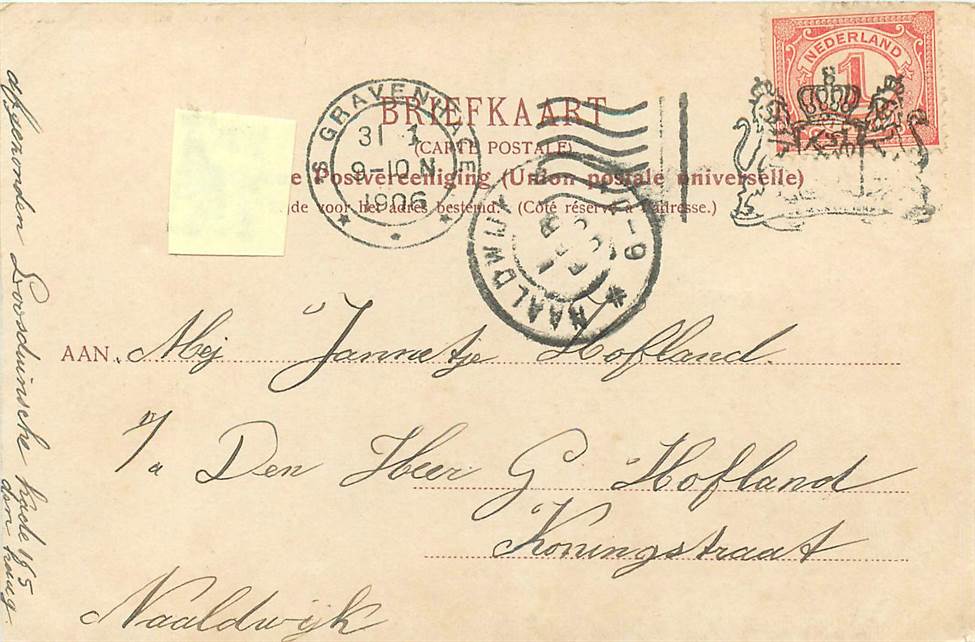 NEDERLAND
1
BRIEFKAART
(CARTE POSTALE)
'S GRAVENHAGE
31 1
9-10 N
1906
e Postvereeniging (Union postale universelle)
de voor het adres bestemd. (Côté réservé à l'adresse.)
NAALDWIJK
AAN Mej Jannetje Hofland
p/a Den Heer G Hofland
Koningstraat
Naaldwijk
afgezonden Loosduinsche kade 165
den haag